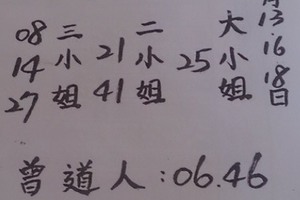 13.16.18日
大小姐
25
二小姐
21
41
三小姐
08
14
27
曾道人:06.46